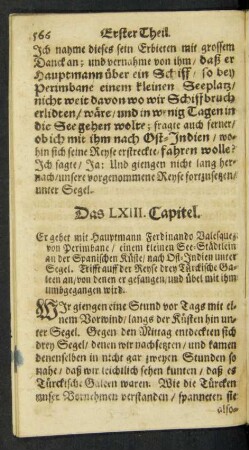 566 Erster Theil.
Ich nahme dieses sein Erbieten mit grossem
Danck an; und vernahme von ihm/ daß er
Hauptmann über ein Schiff/ so bey
Perimbane einem kleinen Seeplatz/
nicht weit davon wo wir Schiffbruch
erlidten/ wäre/ und in wenig Tagen in
die See gehen wolte; fragte auch ferner/
ob ich mit ihm nach Ost-Indien/ wo-
hin sich seine Reyse erstreckte/ fahren wolle?
Ich sagte/ Ja: Und giengen nicht lang her-
nach/ unsere vorgenommene Reyse fortzusetzen/
unter Segel.
Das LXIII. Capitel.
Er gehet mit Hauptmann Ferdinando Valesquez
von Perimbane/ einem kleinen See-Städtlein
an der Spanischen Küste/ nach Ost-Indien unter
Segel. Trifft auff der Reyse drey Türckische Ga-
leen an/ von denen er gefangen/ und übel mit ihm
umbgegangen wird.
WIr giengen eine Stund vor Tags mit ei-
nem Vorwind/ langs der Küsten hin un-
ter Segel. Gegen den Mittag entdeckten sich
drey Segel/ denen wir nachsetzten/ und kamen
denenselben in nicht gar zweyen Stunden so
nahe/ daß wir leichtlich sehen kunten/ daß es
Türckische Galeen waren. Wie die Türcken
unser Vornehmen verstanden/ spanneten sie
also-